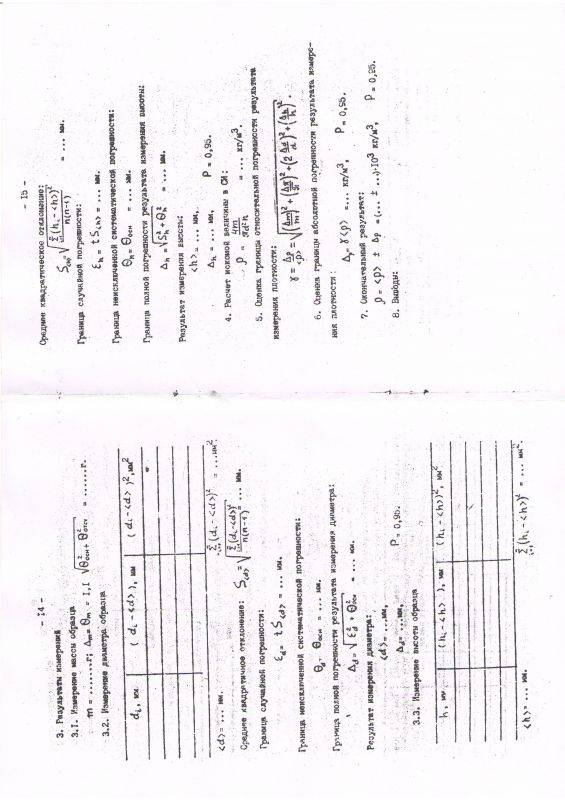 - I4 -
3. Результаты измерений
3.I. Измерение массы образца
m = .......г; Δm = Θm = I,I √Θ²осн + Θ²отсч = ......г.
3.2. Измерение диаметра образца
di, мм. | (di - <d>), мм | (di - <d>)², мм²
<d> = ... мм. Σ(di - <d>)² = ...мм².
Среднее квадратичное отклонение: S<d> = √(Σ(di - <d>)² / n(n-1)) = ... мм.
Граница случайной погрешности:
εd = t S<d> = ... мм.
Граница неисключенной систематической погрешности:
Θd = Θосн = ... мм.
Граница полной погрешности результата измерения диаметра:
Δd = √(ε²d + Θ²осн) = ... мм.
Результат измерения диаметра:
<d> = ...мм,
Δd = ...мм, P = 0,95.
3.3. Измерение высоты образца
h, мм. | (hi - <h>), мм | (hi - <h>)², мм²
<h> = ... мм. Σ(hi - <h>)² = ... мм².
- I5 -
Среднее квадратическое отклонение:
S<h> = √(Σ(hi - <h>)² / n(n-1)) = ... мм.
Граница случайной погрешности:
εh = t S<h> = ... мм.
Граница неисключенной систематической погрешности:
Θh = Θосн = ... мм.
Граница полной погрешности результата измерения высоты:
Δh = √(S²h + Θ²h) = ... мм.
Результат измерения высоты:
<h> = ... мм.
Δh = ... мм. P = 0,95.
4. Расчет искомой величины в СИ:
ρ = 4m / πd²h = ... кг/м³.
5. Оценка границы относительной погрешности результата
измерения плотности:
γ = Δρ / <ρ> = √((Δm/m)² + (Δπ/π)² + (2 Δd/d)² + (Δh/h)²).
6. Оценка границы абсолютной погрешности результата измере-
ния плотности:
Δρ γ <ρ> = ... кг/м³, P = 0,95.
7. Окончательный результат:
ρ = <ρ> ± Δρ = (... ± ...)·10³ кг/м³, P = 0,95.
8. Выводы: